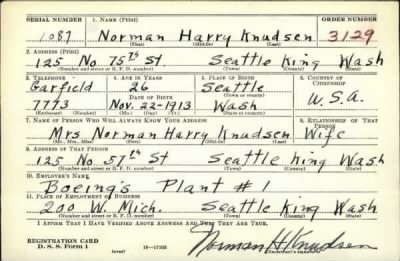 SERIAL NUMBER 1. NAME (Print) ORDER NUMBER
1087 Norman Harry Knudsen 3129
(First) (Middle) (Last)
2. ADDRESS (Print)
125 No 75th St. Seattle King Wash
(Number and street or R. F. D. number) (Town) (County) (State)
3. TELEPHONE 4. AGE IN YEARS 5. PLACE OF BIRTH 6. COUNTRY OF CITIZENSHIP
Garfield 26 Seattle
DATE OF BIRTH
7773 Nov. 22-1913 Wash U.S.A.
7. NAME OF PERSON WHO WILL ALWAYS KNOW YOUR ADDRESS 8. RELATIONSHIP OF THAT PERSON
Mrs Norman Harry Knudsen Wife
(Mr., Mrs., Miss) (First) (Middle) (Last)
9. ADDRESS OF THAT PERSON
125 No 57th St Seattle King Wash
(Number and street or R. F. D. number) (Town) (County) (State)
10. EMPLOYER'S NAME
Boeing's Plant #1
11. PLACE OF EMPLOYMENT OR BUSINESS
200 W. Mich. Seattle King Wash
(Number and street or R. F. D. number) (Town) (County) (State)
I AFFIRM THAT I HAVE VERIFIED ABOVE ANSWERS AND THAT THEY ARE TRUE.
REGISTRATION CARD
D. S. S. Form 1 Norman H Knudsen
(Registrant's signature)